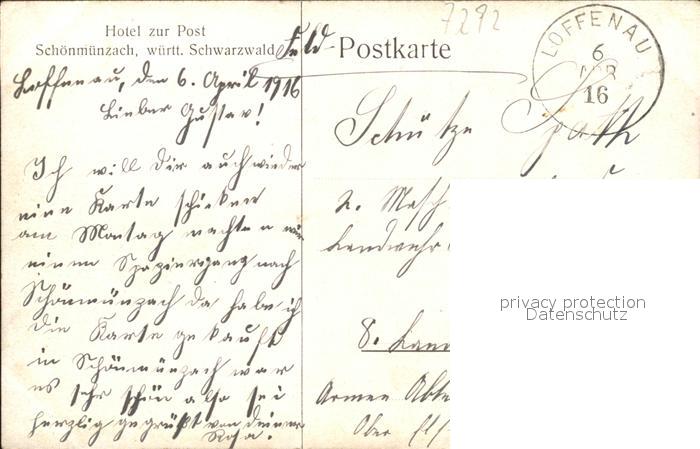 Hotel zur Post
Schönmünzach, württ. Schwarzwald
7292
Feld-Postkarte
LOFFENAU
6
APR
16
Loffenau, den 6. April 1916
Lieber Gustav!
Ich will dir auch wieder
eine Karte schicken
am Montag machten wir
einen Spaziergang nach
Schönmünzach da habe ich
die Karte gekauft
in Schönmünzach war
es sehr schön also sei
herzlig gegrüßt von deiner
Rosa.
Schütze Späth
2. Masch
Landwehr
8. Land
Armee Abte
Ober Els
privacy protection
Datenschutz